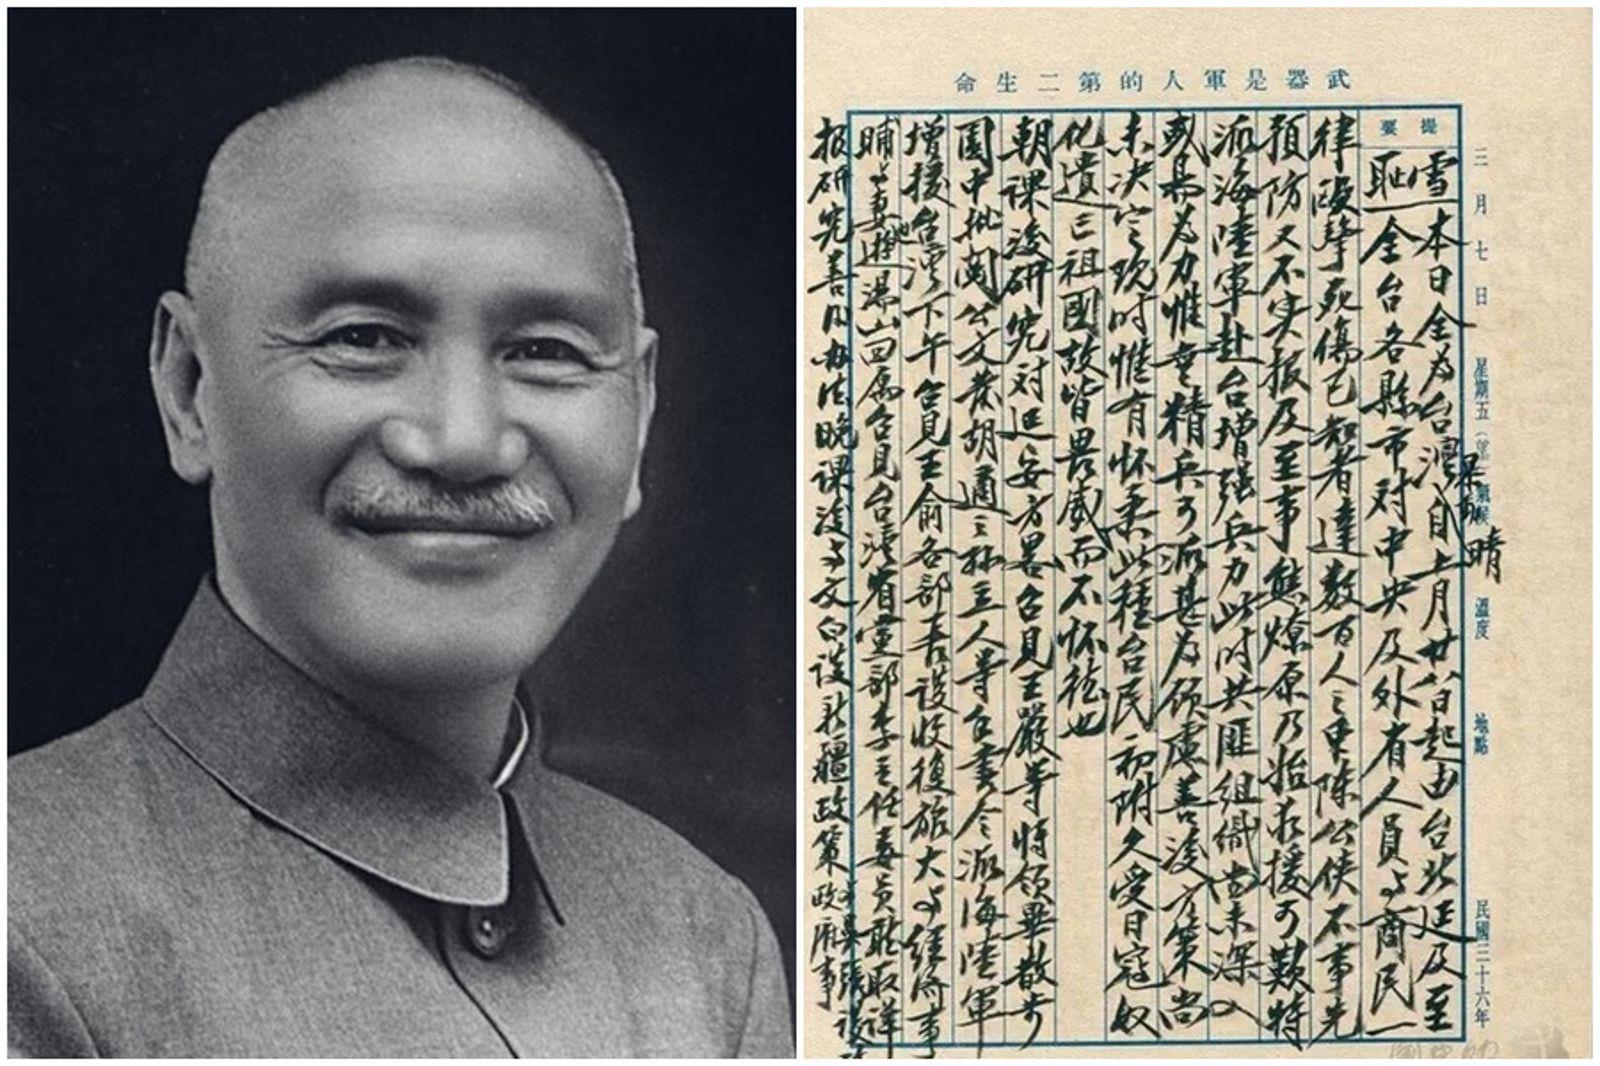 武器是軍人的第二生命
提要
三月七日 星期五 氣候 晴 溫度 地點 民國三十六年
雪恥 本日全為台灣自上月廿八日起由台北延及至
全台各縣市對中央及外省人員與商民一
律毆擊死傷已知者達數百人之眾陳公俠不事先
預防又不實報及至事態燎原乃始求援可歎特
派海陸軍赴台增強兵力此時共匪組織尚未深入
或易為力惟無精兵可派甚為顧慮善後方策尚
未決定現時惟有懷柔此種台民初附久受日寇奴
化遺忘祖國故皆畏威而不懷德也
朝課後研究對延安方略召見王嚴等將領畢散步
園中批閱公文
增援台灣下午召見王俞各部長談收復旅大與經濟事
晡與妻遊湯山回寓召見台灣省黨部李主任委員聽取詳
報研究善後辦法晚課後與文白談新疆政策